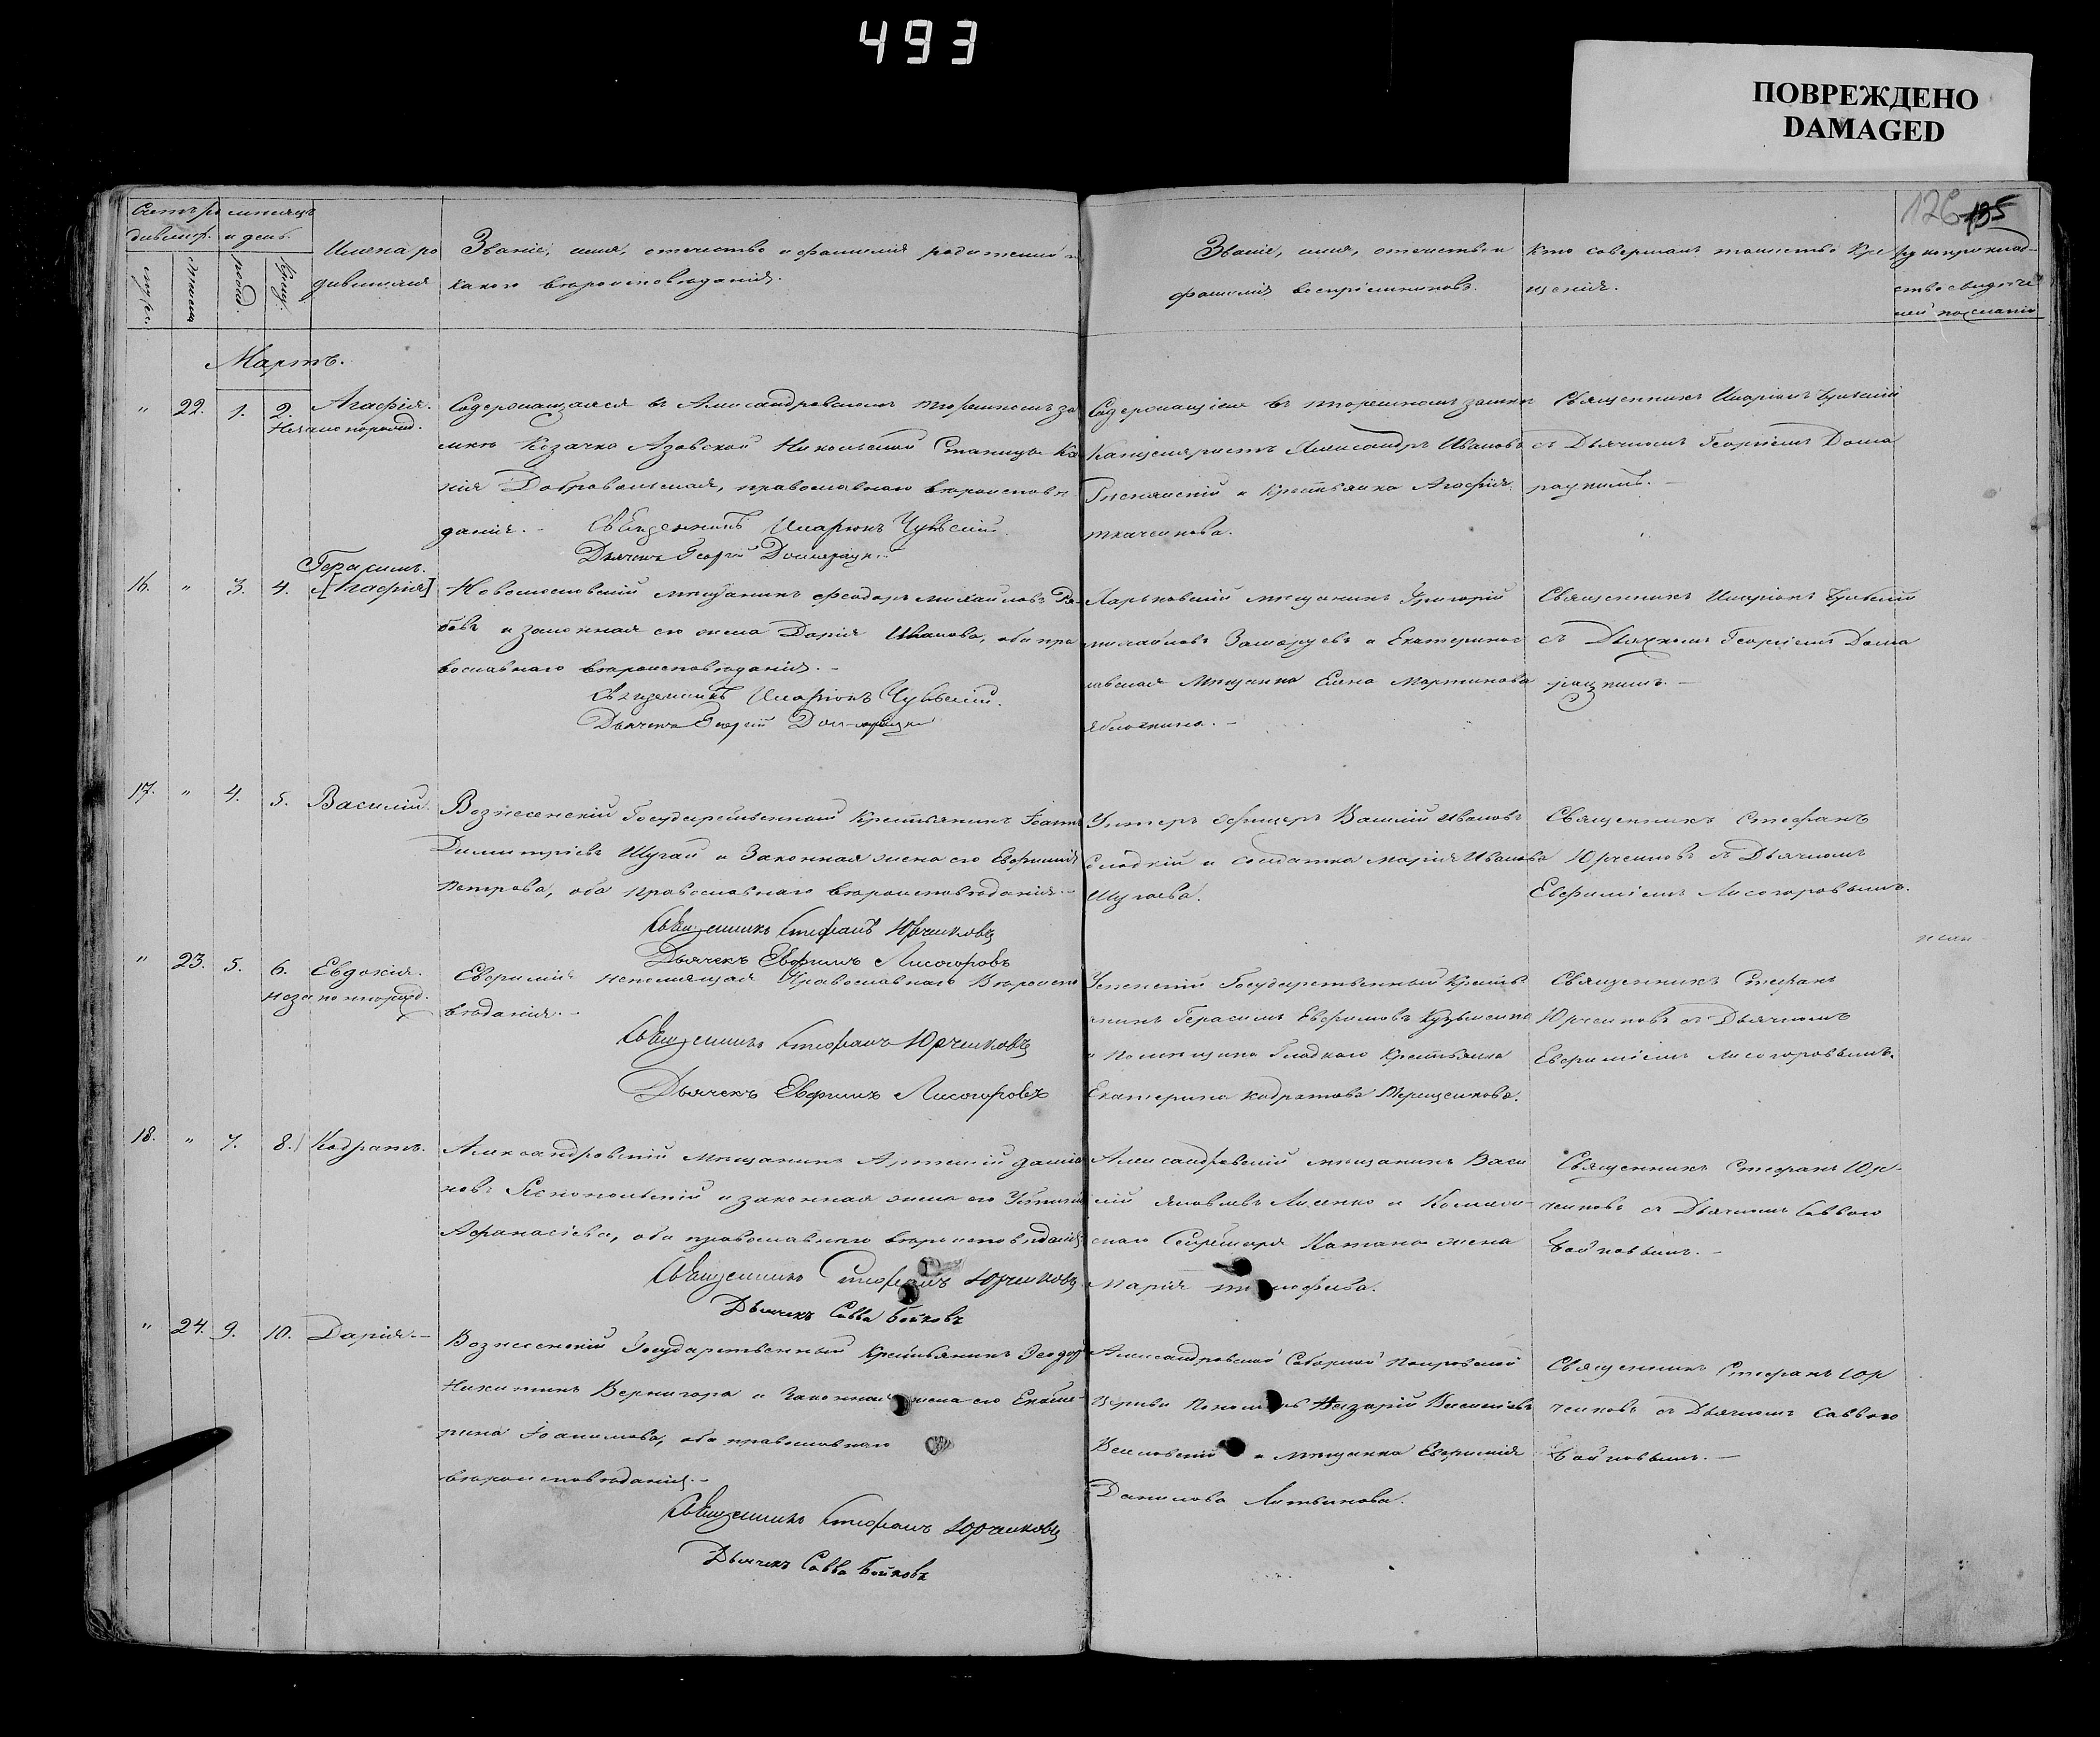 493
ПОВРЕЖДЕНО
DAMAGED
126 135
Счетъ ро
дивших.
мѣсяцъ
и день.
Имена ро
дившихся
Званіе, имя, отечество и фамилія родителей и
какого вѣроисповѣданія.
Званіе, имя, отечество и
фамилія воспріемниковъ.
Кто совершалъ таинство Кре
щенія.
Мартъ.
" 22. 1. 2. Агафія.
Незаконорожд.
Содержащаяся въ Александровскомъ тюремномъ за
мкѣ Козачка Азовской Никольской Станицы
Добровольская, православнаго вѣроисповѣ
данія. -
Священникъ Иларіонъ Чуйскій
Дьячекъ Георгій
Содержащіеся въ тюремномъ замкѣ
Канцеляристъ Александръ Ивановъ
и Крестьянка Агафія
Ткаченкова.
Священникъ Иларіонъ
съ Дьячкомъ Георгіемъ Дома
рацкимъ. -
Герасимъ.
16. " 3. 4. [Агафія]
Новомосковскій мѣщанинъ Феодоръ Михайловъ
бовъ и законная его жена Дарія Иванова, оба пра
вославнаго вѣроисповѣданія. -
Священникъ Иларіонъ Чуйскій.
Дьячекъ Георгій
Харьковскій мѣщанинъ Григорій
Михайловъ и Екатерино
лавская Мѣщанка Елена Мартинова
Яблочкина. -
Священникъ Иларіонъ
съ Дьячкомъ Георгіемъ Дома
рацкимъ. -
17. " 4. 5. Василій.
Вознесенскій Государственный Крестьянинъ Іоаннъ
Димитріевъ Шугай и Законная жена его Евфимія
Петрова, оба православнаго вѣроисповѣданія. -
Священникъ Стефанъ Юрченковъ
Дьячекъ Евфимъ Лисогоровъ
Унтеръ Офицеръ Василій Ивановъ
Гладкій и солдатка Марія Иванова
Шугаева.
Священникъ Стефанъ
Юрченковъ съ Дьячкомъ
Евфиміемъ Лисогоровымъ.
" 23. 5. 6. Евдокія.
незаконнорожд.
Евфимія Православнаго Вѣроиспо
вѣданія. -
Священникъ Стефанъ Юрченковъ
Дьячекъ Евфимъ Лисогоровъ
Успенскій Государственный Кресть
янинъ Герасимъ Евфимовъ Кузьменко
и Помѣщика Гладкаго Крестьянка
Екатерина Кодратова Терещенкова.
Священникъ Стефанъ
Юрченковъ съ Дьячкомъ
Евфиміемъ Лисогоровымъ.
18. " 7. 8. Кодратъ.
Александровскій Мѣщанинъ Артемій Даміа
новъ и законная жена его
Афанасіева, оба православнаго вѣроисповѣданія
Священникъ Стефанъ Юрченковъ
Дьячекъ Савва Бойковъ
Александровскій мѣщанинъ Васи
лій Яковлевъ Лисенко и
скаго Секретаря жена
Марія
Священникъ Стефанъ Юр-
ченковъ съ Дьячкомъ Саввою
Бойковымъ. -
" 24. 9. 10. Дарія. -
Вознесенскій Государственный Крестьянинъ Феодоръ
Никитинъ Вернигора и Законная жена его Екате
рина Іоакимова, оба православнаго
вѣроисповѣданія. -
Священникъ Стефанъ Юрченковъ
Дьячекъ Савва Бойковъ
Александровской Соборной Покровской
Церкви Назарій Васильевъ
и мѣщанка Евфимія
Данилова Литвинова.
Священникъ Стефанъ Юр
ченковъ съ Дьячкомъ Саввою
Бойковымъ. -